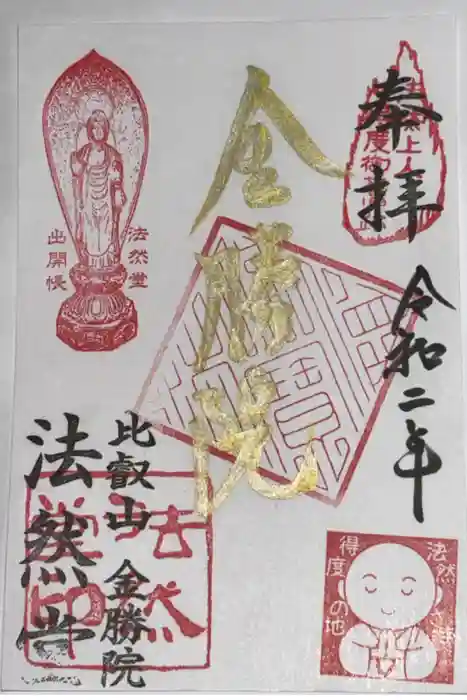 奉拝
令和二年
金勝院
法然堂
出開帳
比叡山 金勝院
法然堂
法然さま
得度の地